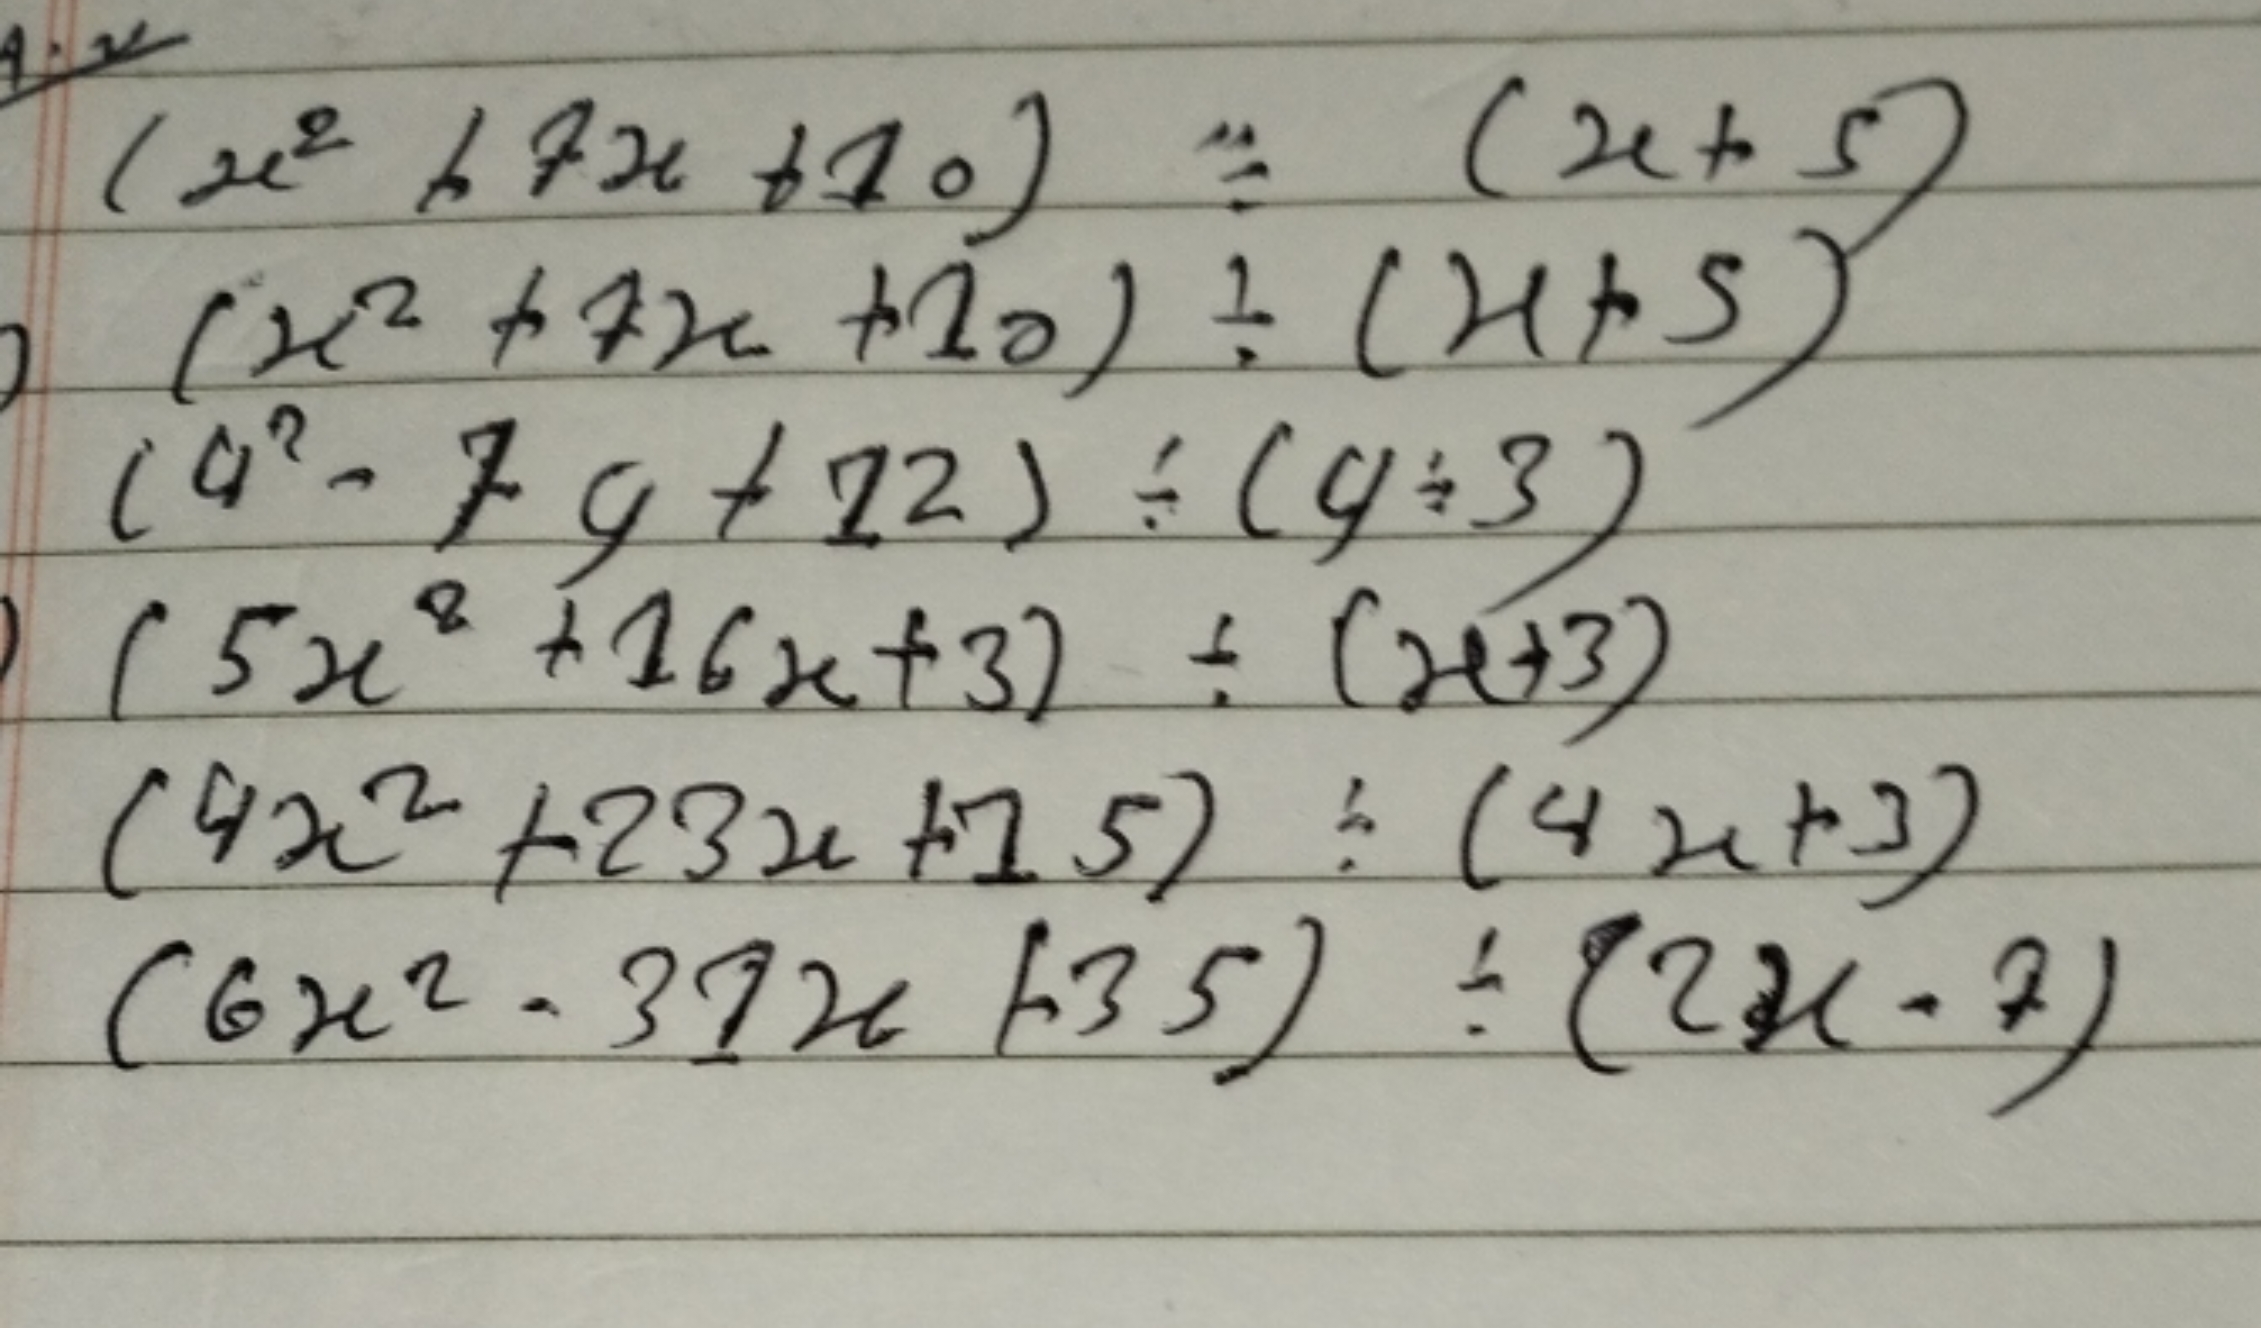 (x² + 7x + 10) ÷ (x + 5)
(x² + 7x + 10) ÷ (x + 5)
(y² - 7y + 12) ÷ (y ÷ 3)
(5x² + 16x + 3) ÷ (x + 3)
(4x² + 23x + 15) ÷ (4x + 3)
(6x² - 31x + 35) ÷ (2x - 7)